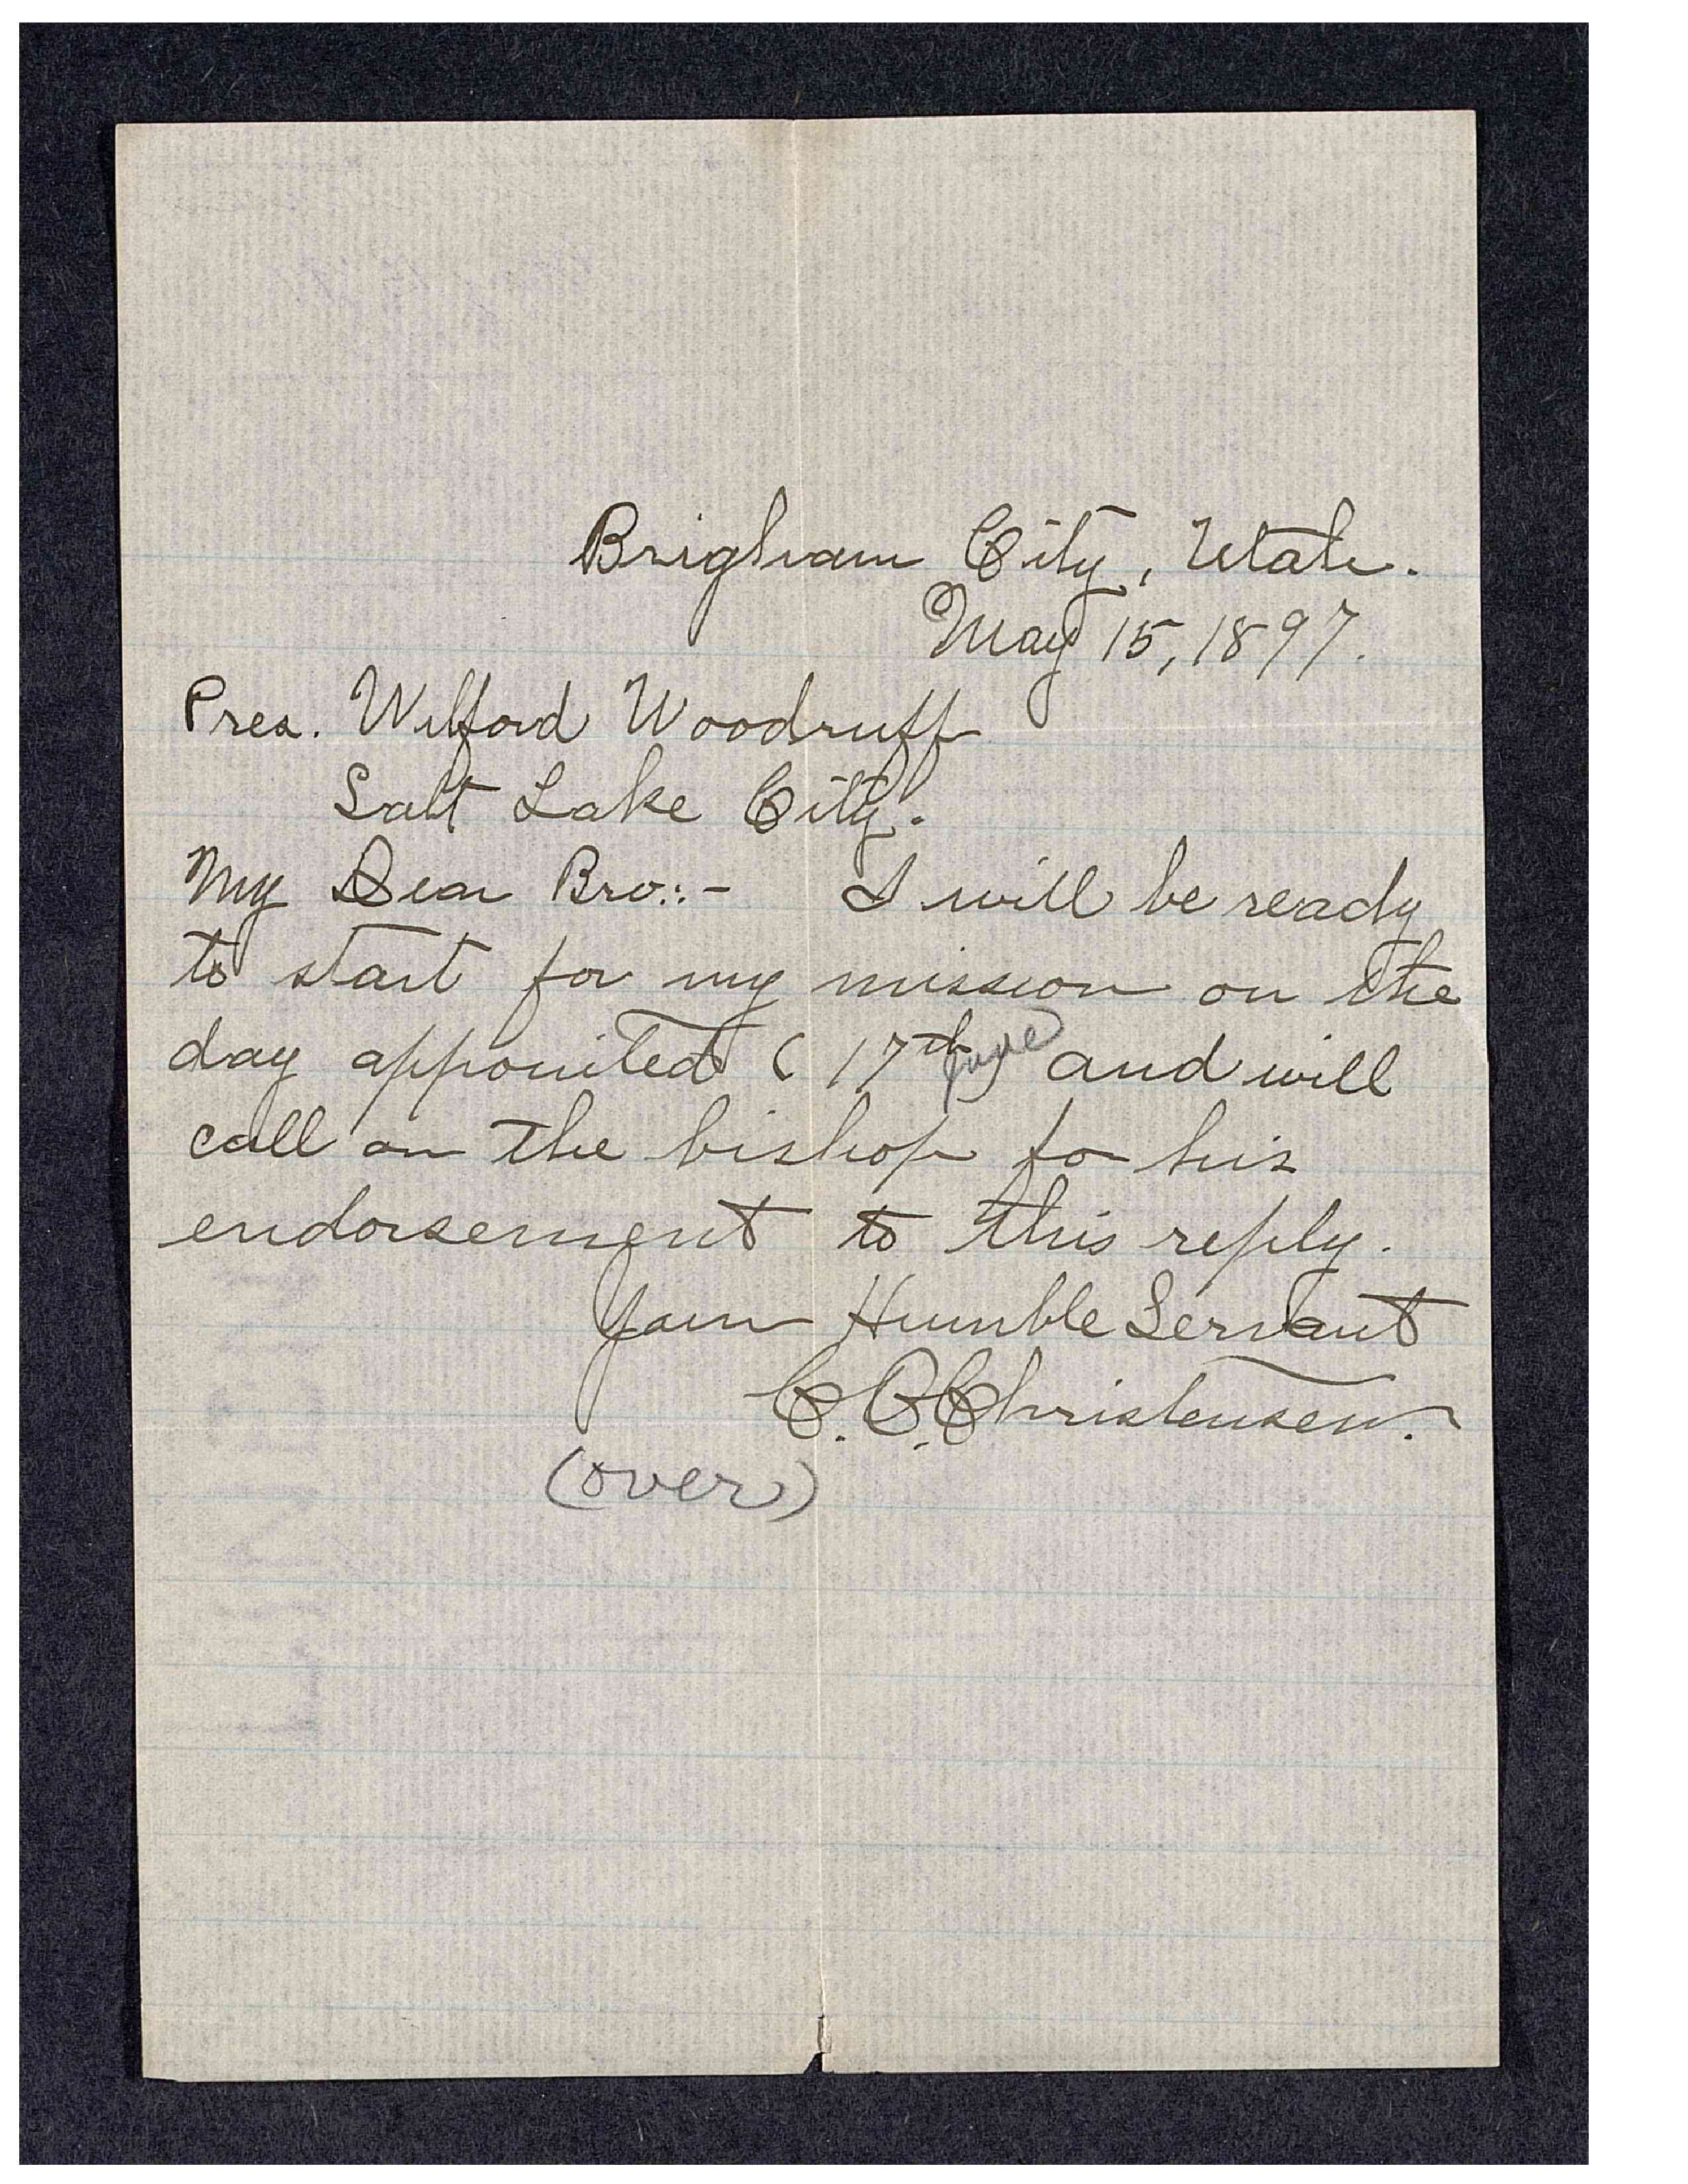 Brigham City, Utah.
May 15, 1897.
Pres. Wilford Woodruff
Salt Lake City.
My Dear Bro.:- I will be ready
to start for my mission on the
day appointed (17th June) and will
call on the bishop for his
endorsement to this reply.
Your Humble Servant
C. C. Christensen.
(over)